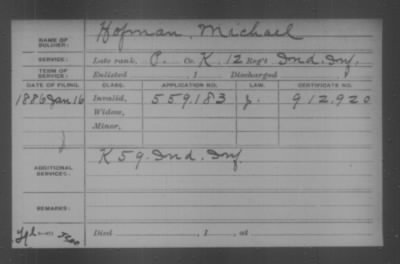 NAME OF SOLDIER: Hofman, Michael
SERVICE: Late rank, P. Co. K, 12 Reg't Ind. Inf.
TERM OF SERVICE: Enlisted , 1 Discharged , 1
DATE OF FILING. CLASS. APPLICATION NO. LAW. CERTIFICATE NO.
1886 Jan 16 Invalid, 559.183 J. 912.920
Widow,
Minor,
ADDITIONAL SERVICES: K 59. Ind. Inf.
REMARKS:
Died , 1 , at